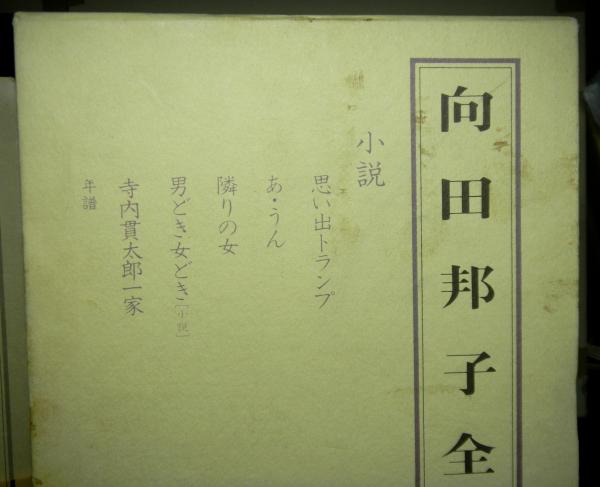 向田邦子全
小説
思い出トランプ
あ・うん
隣りの女
男どき女どき［小説］
寺内貫太郎一家
年譜